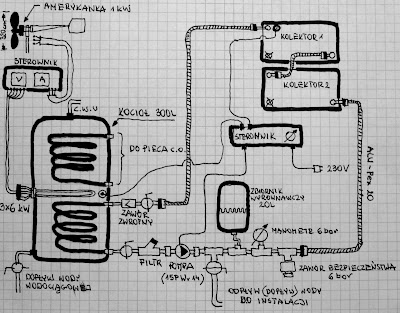 AMERYKANKA 1 KW
STEROWNIK
V A
C.W.U
KOCIOŁ 300L
DO PIECA C.O.
KOLEKTOR 1
KOLEKTOR 2
STEROWNIK
230V
ALU-PEX 20
3x6 KW
ZAWÓR
ZWROTNY
ZBIORNIK
WYRÓWNAWCZY
20L
MANOMETR 6 bar
FILTR
POMPA
DOPŁYW WODY
WODOCIĄGOWEJ
ODPŁYW (DOPŁYW) WODY
DO INSTALACJI
ZAWÓR BEZPIECZEŃSTWA
6 bar